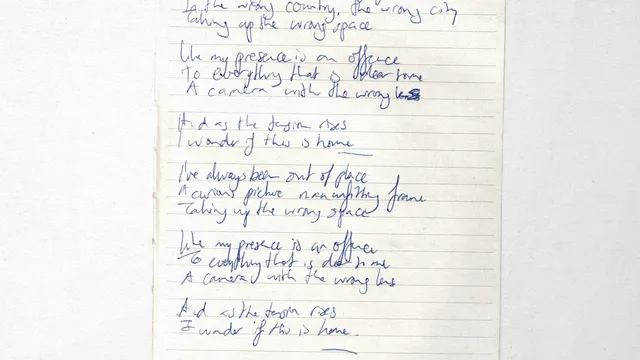 the wrong country, the wrong city
Taking up the wrong space
Like my presence is an offence
To everything that is dear to me
A camera with the wrong lens
And as the tension rises
I wonder if this is home
I've always been out of place
A curious picture in an unfitting frame
Taking up the wrong space
Like my presence is an offence
To everything that is dear to me
A camera with the wrong lens
And as the tension rises
I wonder if this is home.